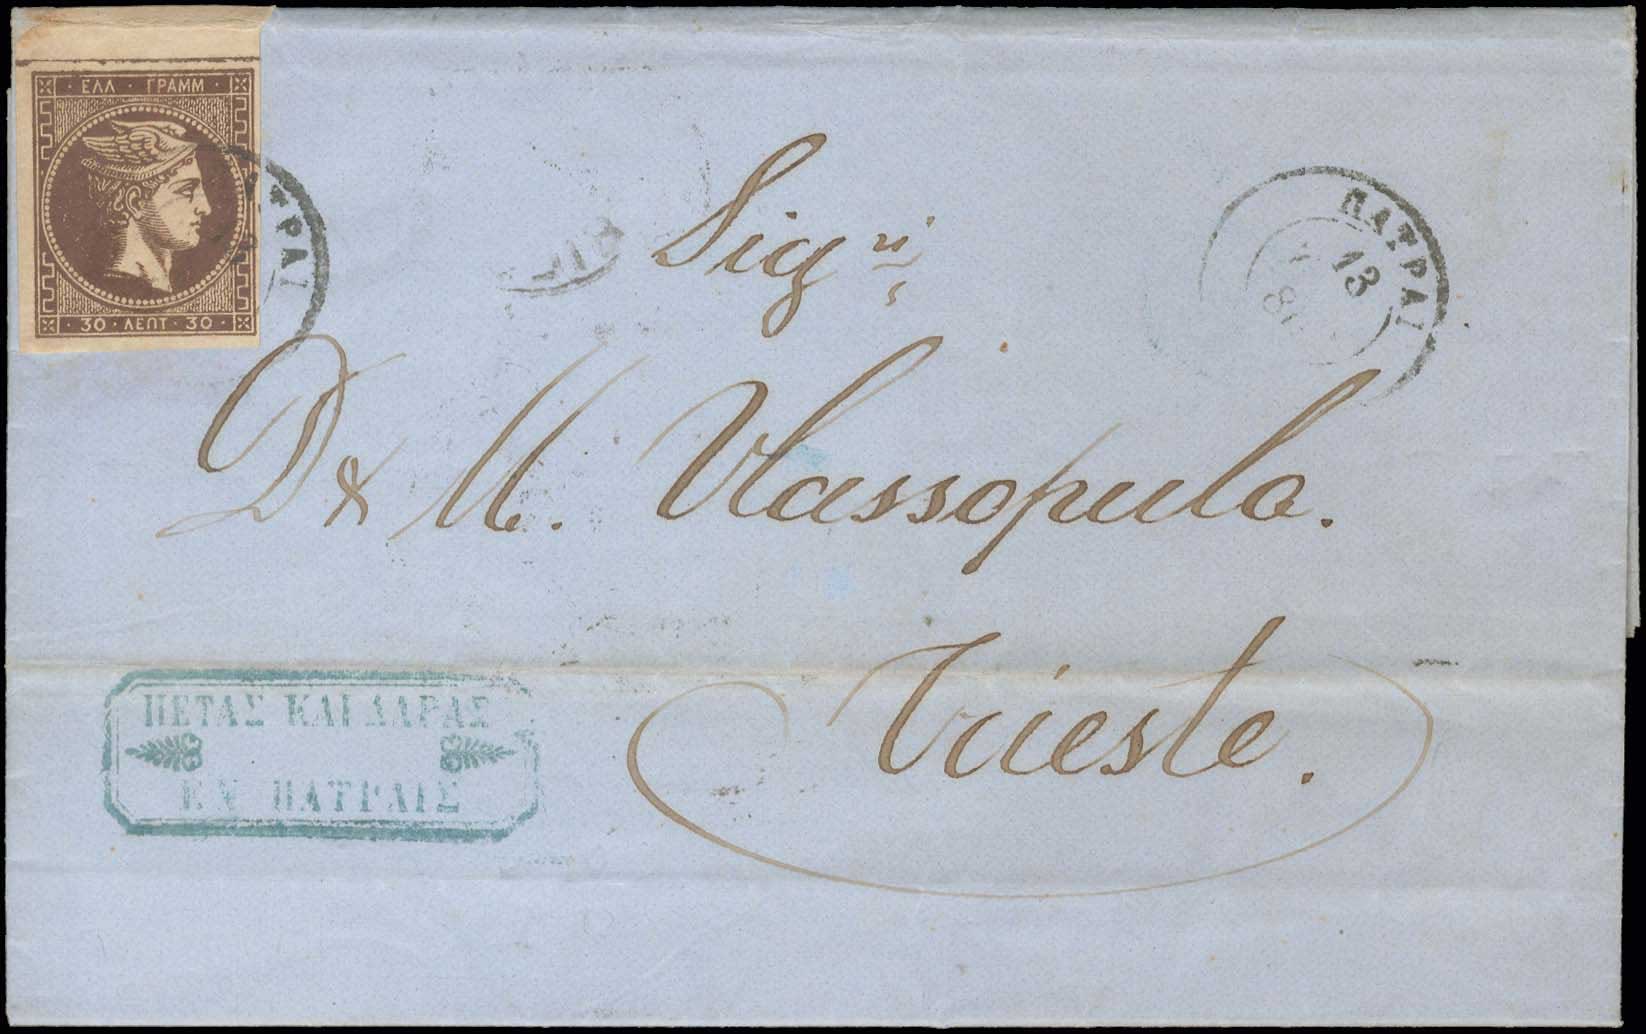 ΕΛΛ · ΓΡΑΜΜ
30 · ΛΕΠΤ · 30
ΤΡΑΙ
ΠΑΤΡΑΙ
13
Sigri
D & M. Vlassopulo.
Trieste.
ΠΕΤΑΣ ΚΑΙ ΔΑΡΑΣ
ΕΝ ΠΑΤΡΑΙΣ